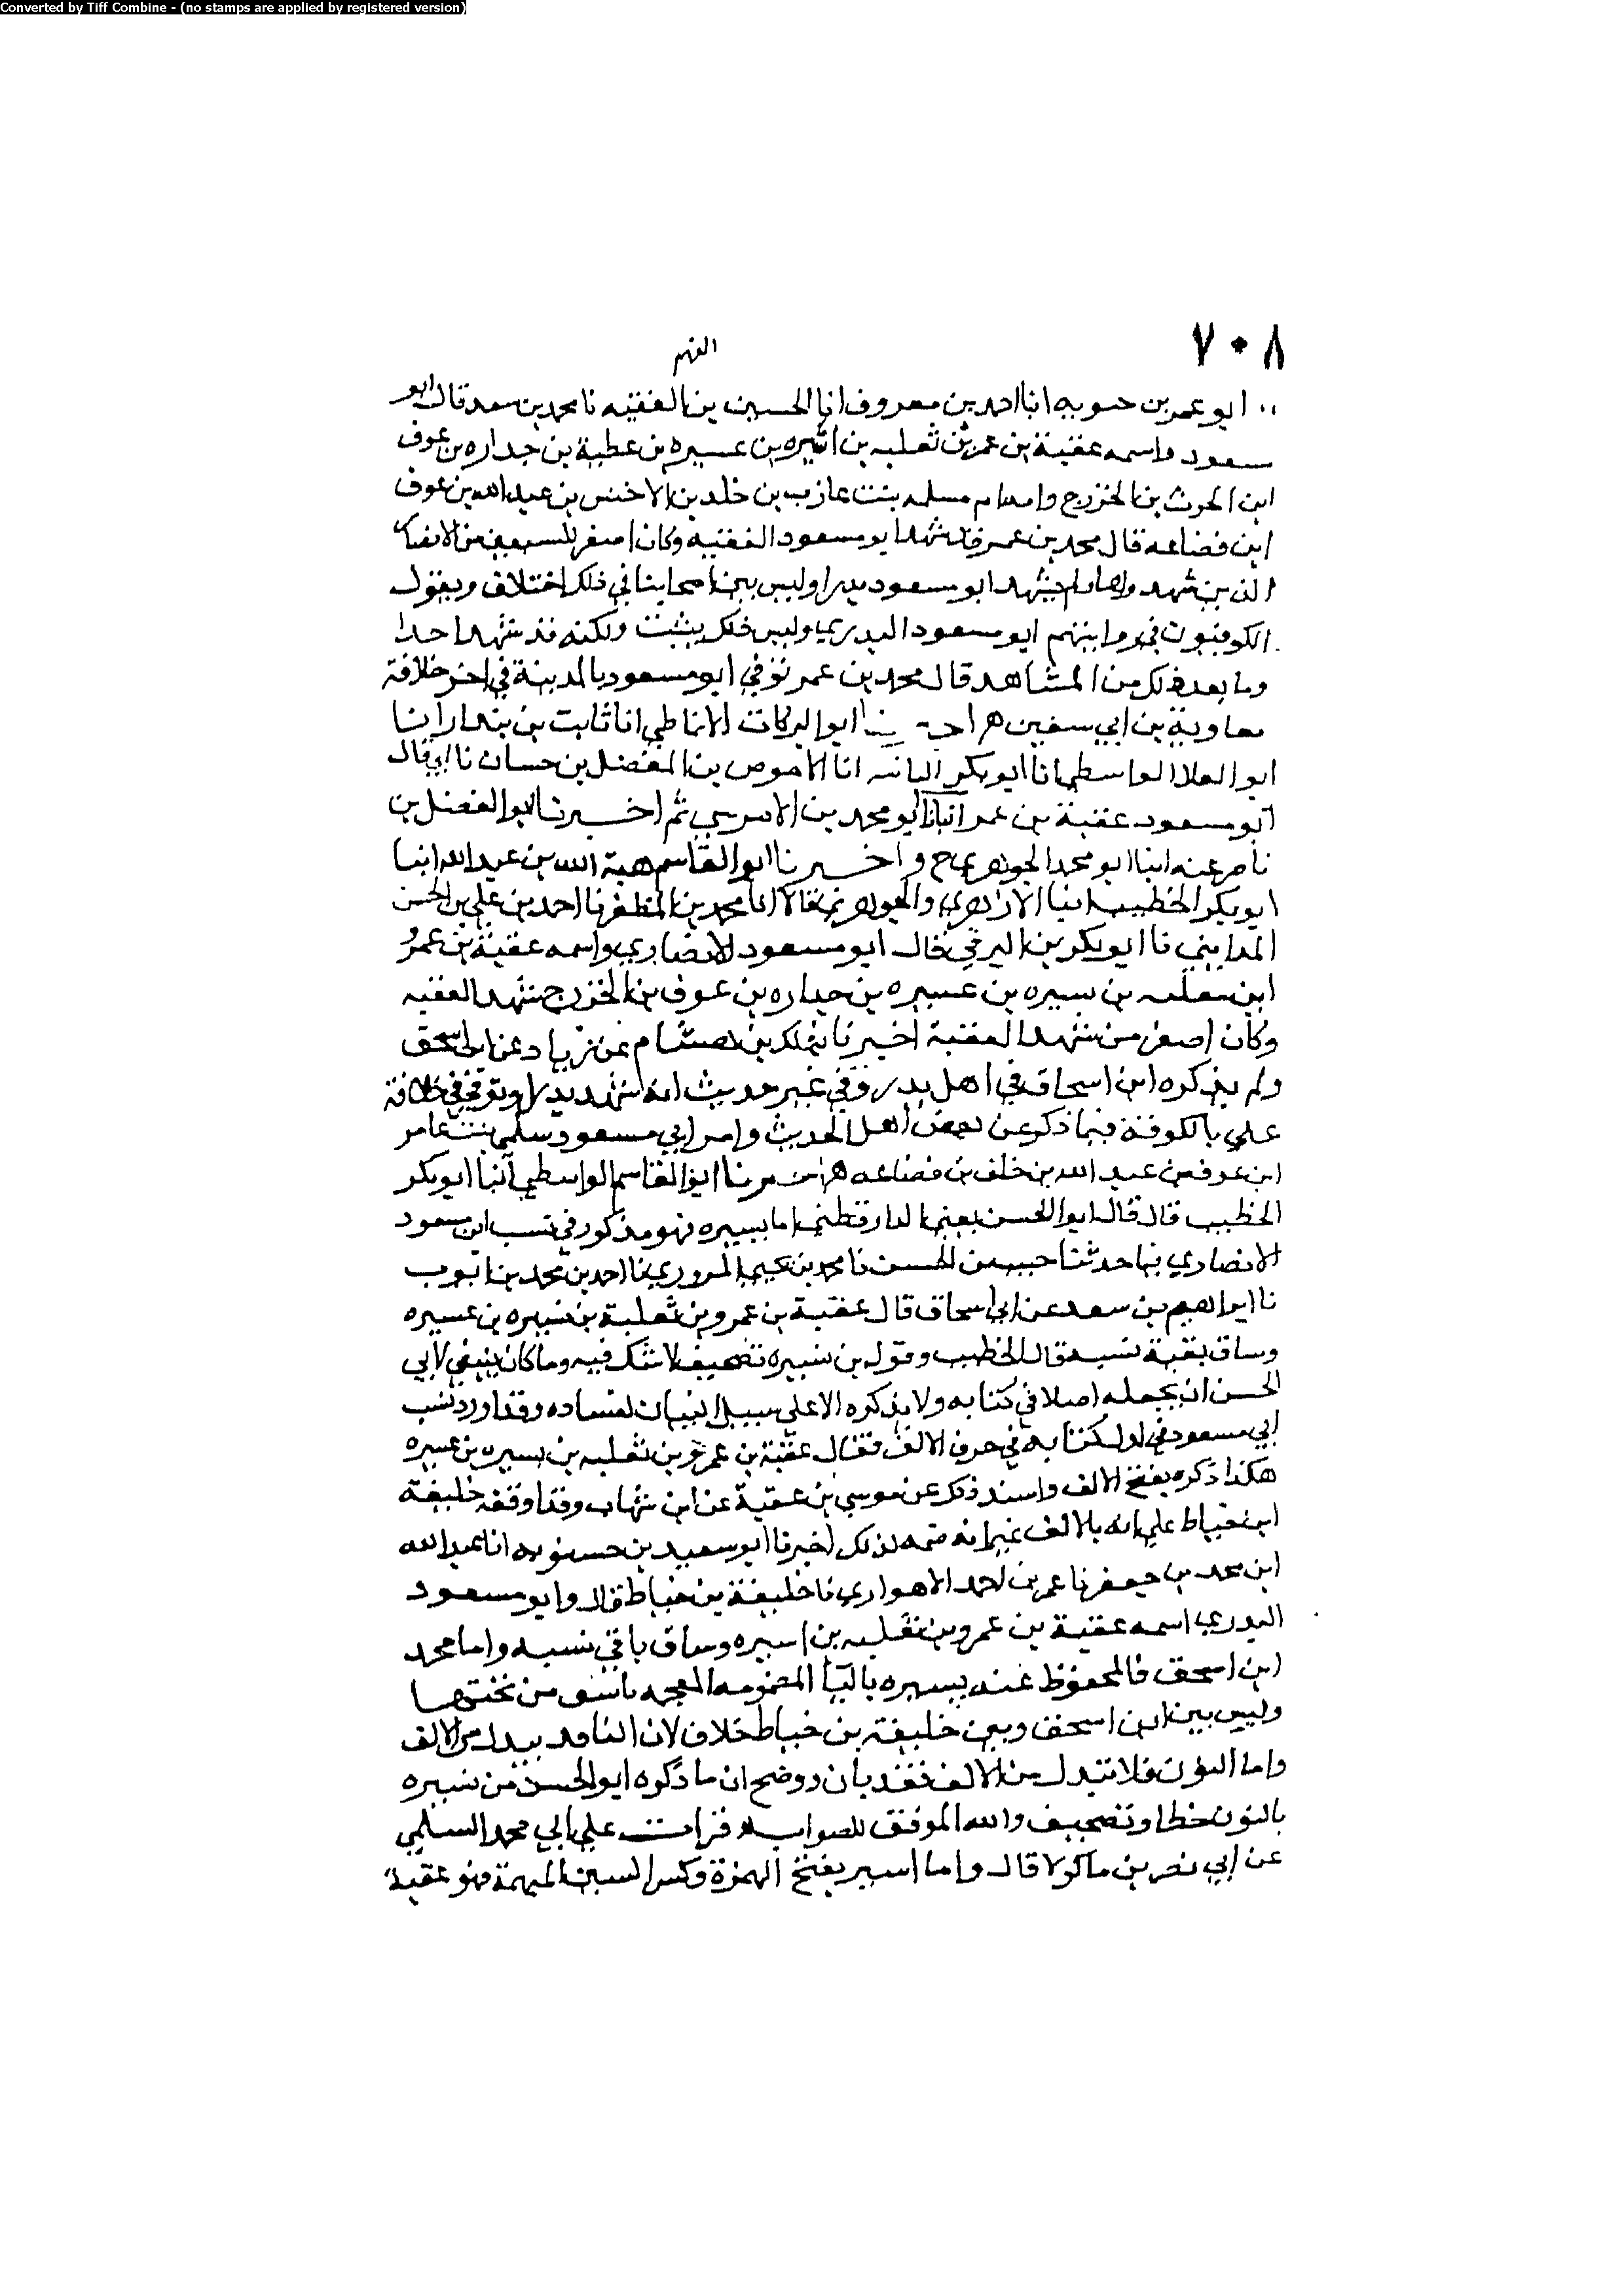 Converted by Tiff Combine - (no stamps are applied by registered version)
٧٠٨
الفهم
ابو عمر بن حيويه انا احمد بن معروف انا الحسين بن الفقيه نا محمد بن سعد قال ابو
سعود واسمه عقبة بن عمر بن ثعلبه بن اسيره بن عسيره بن عطية بن جداره بن عوف
ابن الحرث بن الخزرج وامه ام مسلمه بنت عازب بن خلد بن الاخنس بن عبد الله بن عوف
ابن قضاعه قال محمد بن عمر قد شهد ابو مسعود العقبه وكان اصغر السبعين من الانصار
الذين شهدوها ولم يشهد ابو مسعود بدرا وليس بين اصحابنا في ذلك اختلاف ويقول
الكوفيون في روايتهم ابو مسعود البدري وليس ذلك بثبت ولكنه قد شهد احدا
وما بعد ذلك من المشاهد قال محمد بن عمر توفي ابو مسعود بالمدينة في اخر خلافة
معاوية بن ابي سفين ابو البركات الانماطي انا ثابت بن بندار انا
ابو العلا الواسطي انا ابو بكر انا الاحوص بن المفضل بن حسان نا ابي قال
ابو مسعود عقبة بن عمر انبانا ابو محمد بن ثم اخبرنا ابو الفضل بن
ناصر عنه انبا ابو محمد الجوهري ح واخبرنا ابو القاسم هبة الله بن عبد الله انبا
ابو بكر الخطيب انبا الازهري والجوهري قالا انا محمد بن المظفر نا احمد بن علي بن الحسن
المدايني نا ابو بكر بن البرقي قال ابو مسعود الانصاري واسمه عقبة بن عمرو
ابن ثعلبه بن سيره بن عسيره بن جداره بن عوف بن الخزرج شهد العقبه
وكان اصغر من شهد العقبة اخبرنا بذلك بن هشام عن زياد عن ابن اسحق
ولم يذكره ابن اسحاق في اهل بدر وفي غير حديث انه شهد بدرا وتوفي في خلافة
علي بالكوفة فيما ذكر عن بعض اهل الحديث وام ابي مسعود سلمى بنت عامر
ابن عوف بن عبد الله بن خلف بن قضاعه اخبرنا ابو القاسم الواسطي انبا ابو بكر
الخطيب قال قال ابو الحسن يعني الدارقطني اما يسيره فهو مذكور في نسب ابن مسعود
الانصاري بما حدثنا حبيب بن الحسن نا محمد بن يحيى المروزي نا احمد بن محمد بن ايوب
نا ابراهيم بن سعد عن ابن اسحاق قال عقبة بن عمرو بن ثعلبة بن نسيره بن عسيره
وساق بقية نسبه قال الخطيب وقوله بن نسيره تصحيف لا شك فيه وما كان ينبغي لابي
الحسن ان يجعله اصلا في كتابه ولا يذكره الا على سبيل البيان لفساده وقد اورد نسب
ابي مسعود في اول كتابه في حرف الالف فقال عقبة بن عمرو بن ثعلبه بن اسيره بن عسيره
هكذا ذكره بفتح الالف واسند ذلك عن موسى بن عقبة عن ابن شهاب وقد اوقفه خليفة
ابن خياط على انه بالالف غير انه ضمه لذلك اخبرنا ابو سعيد بن حسنويه انا عبد الله
ابن محمد بن جعفر نا عمر بن احمد الاهوازي نا خليفة بن خياط قال وابو مسعود
البدري اسمه عقبة بن عمرو بن ثعلبه بن اسيره وساق باقي نسبه واما محمد
ابن اسحق فالمحفوظ عنه يسيره باليا المضمومه المعجمه باثنتين من تحتها
وليس بين ابن اسحق وبين خليفة بن خياط خلاف لان اليا قد يبدل من الالف
واما النون فلا تبدل من الالف فقد بان ووضح ان ما ذكره ابو الحسن من نسيره
بالنون خطا وتصحيف والله الموفق للصواب قرات علي ابي محمد السلمي
عن ابي نصر بن ماكولا قال واما اسير بفتح الهمزة وكسر السين المهمة فهو عقبة